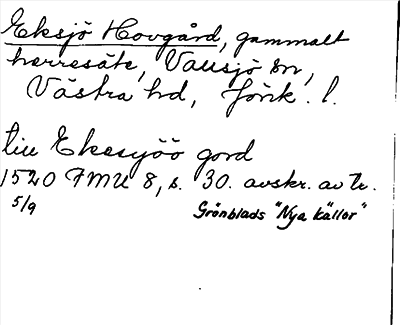 Eksjö Hovgård, gammalt
herresäte, Vallsjö sn,
Västra hd, Jönk. l.
till Ekesyöö gord
1520 FMU 8, s. 30. avskr. av
5/9 Grönblads "Nya källor"